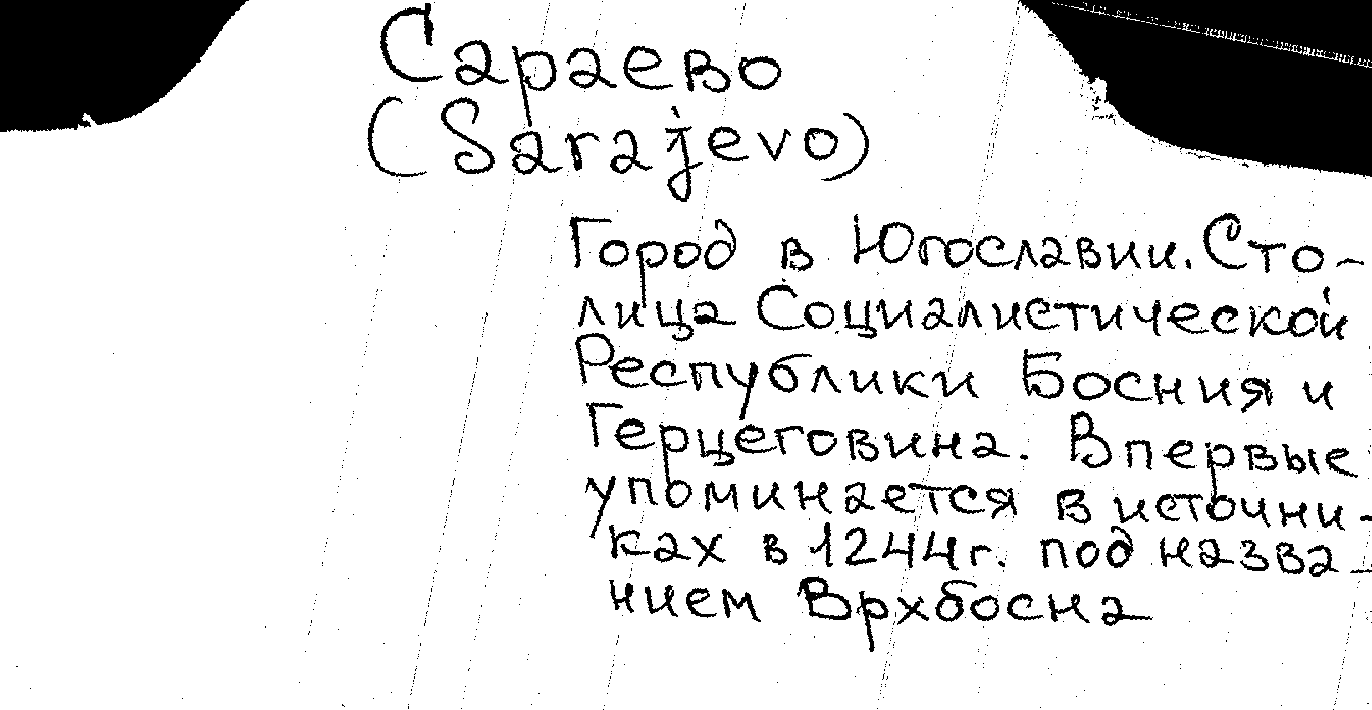 Сараево
(Sarajevo)
Город в Югославии. Сто-
лица Социалистической
Республики Босния и
Герцеговина. Впервые
упоминается в источни-
ках в 1244г. под назва-
нием Врхбосна